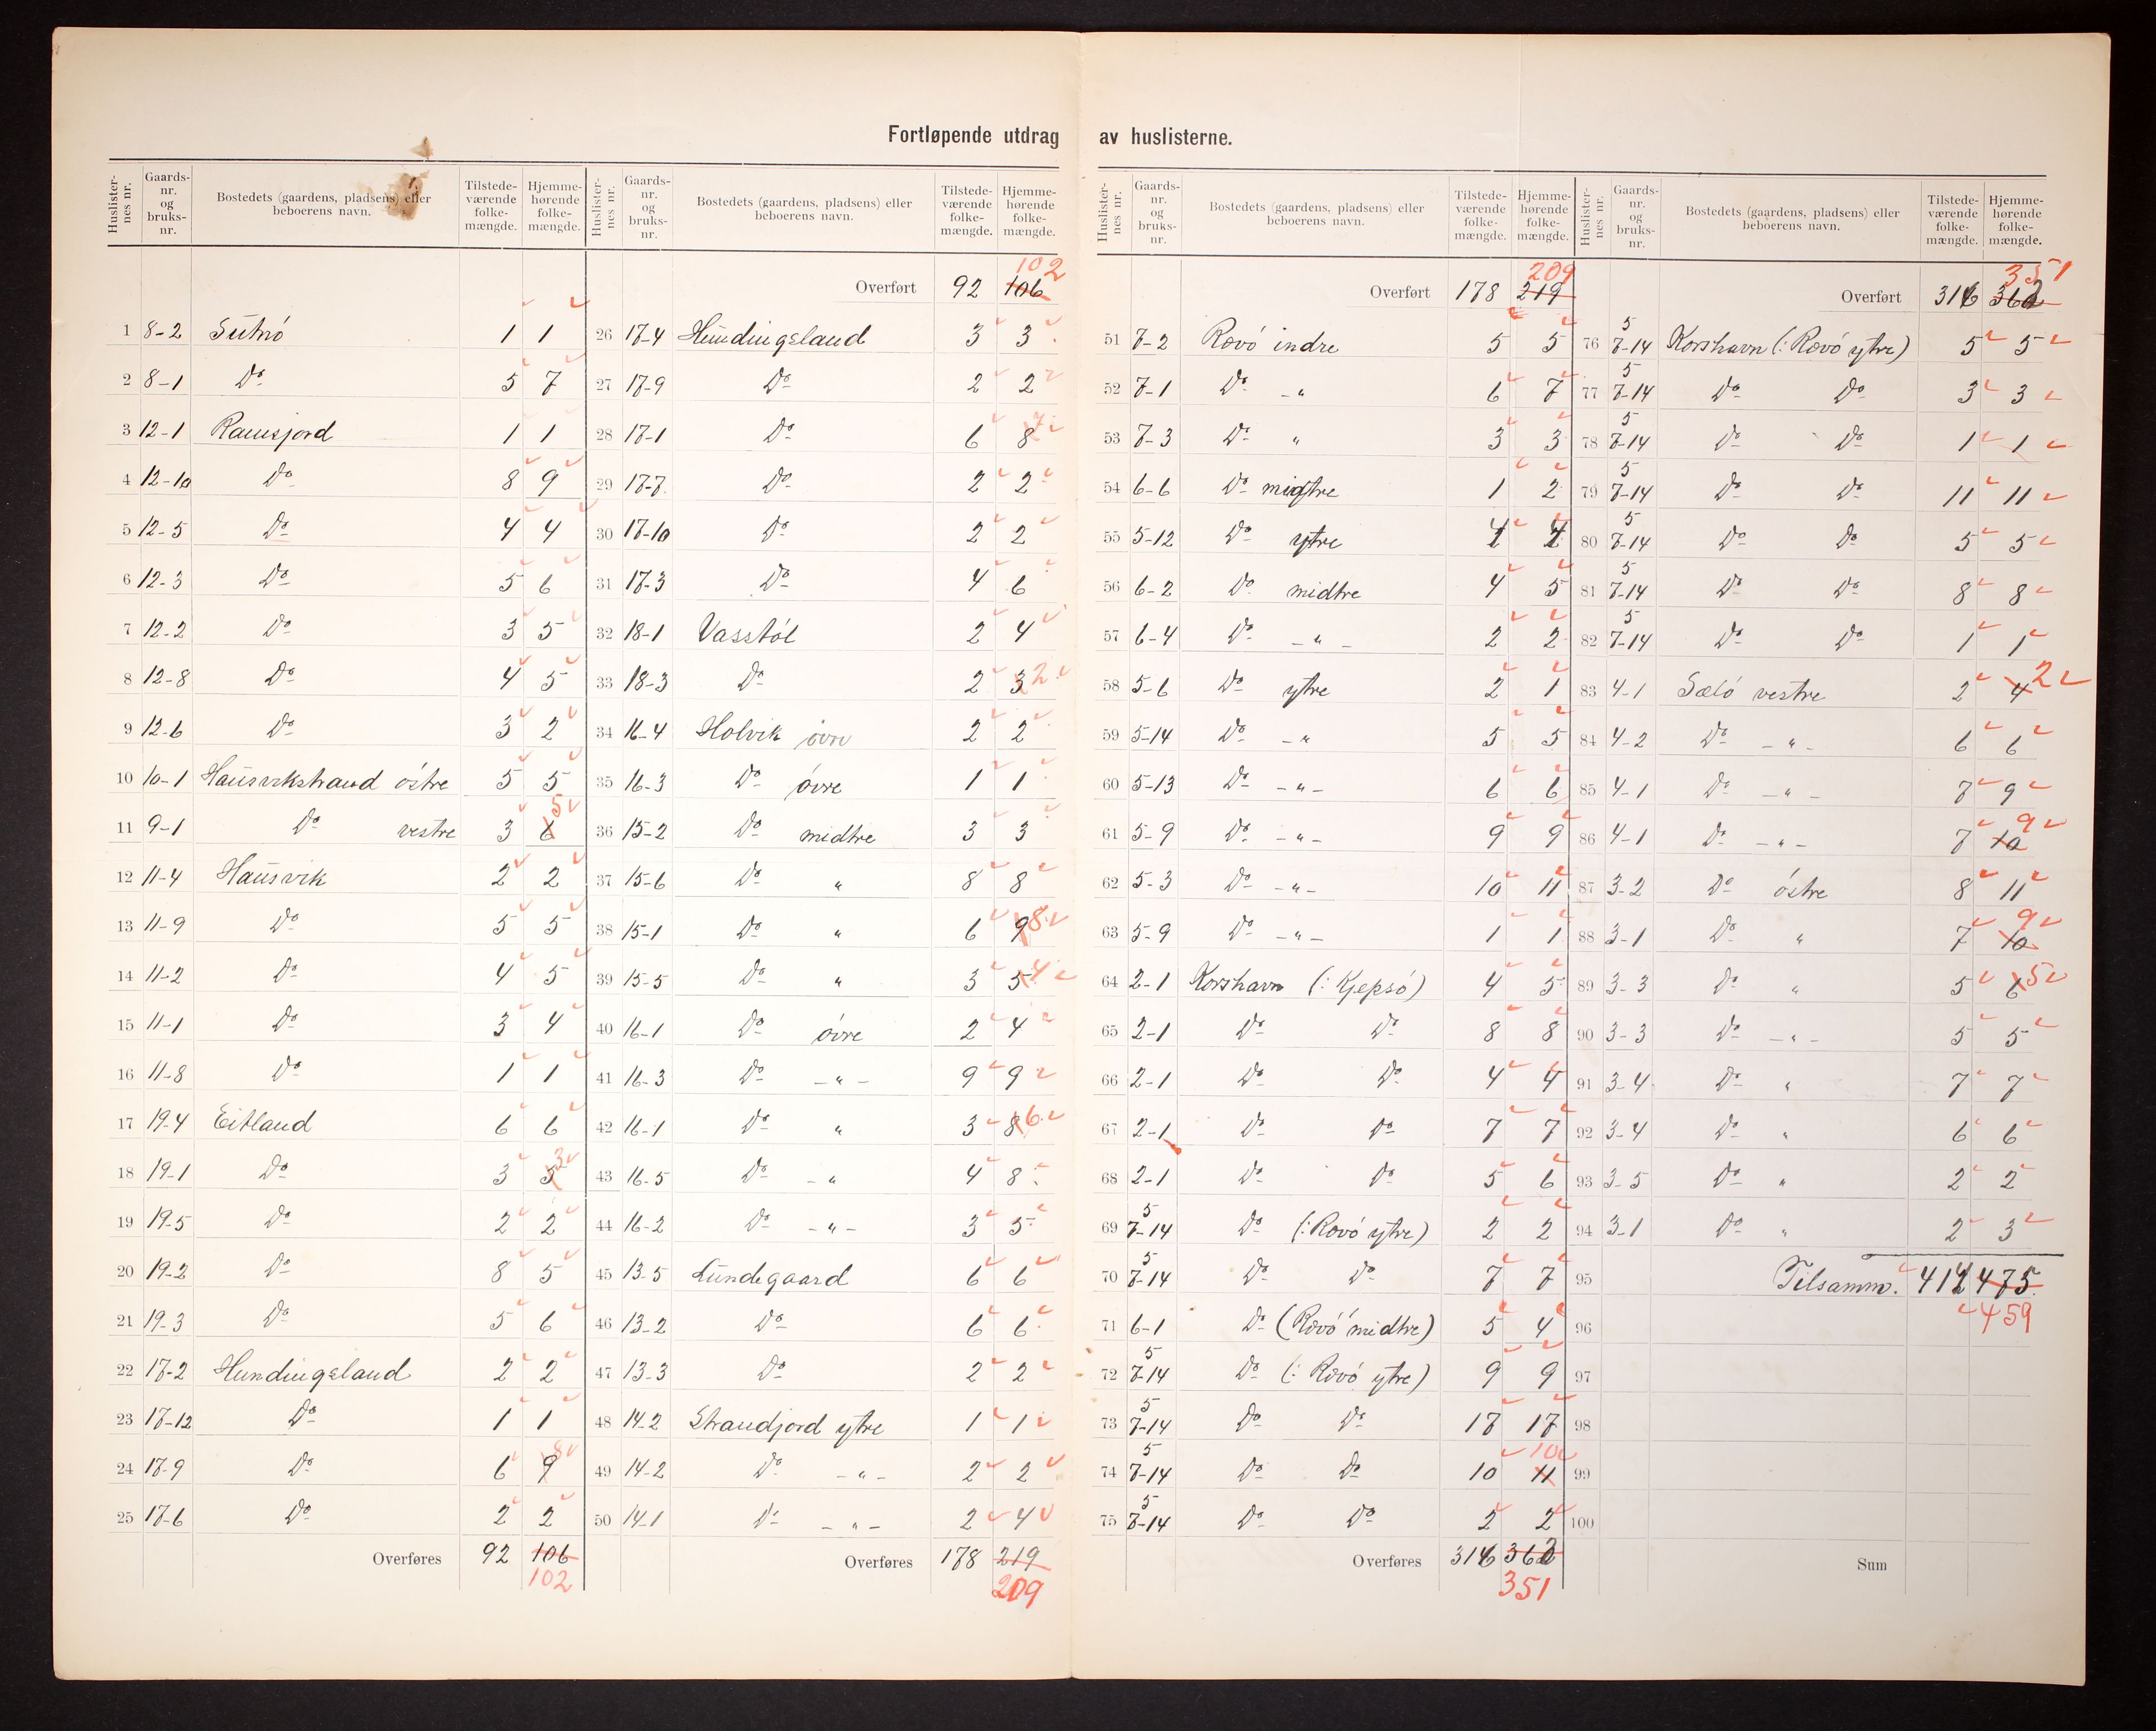 Fortløpende utdrag av huslisterne.
Huslister-nes nr. | Gaards-nr. og bruks-nr. | Bostedets (gaardens, pladsens) eller beboerens navn. | Tilstede-værende folke-mængde. | Hjemme-hørende folke-mængde.
1 8-2 Sütnö 1 1
2 8-1 Do 5 7
3 12-1 Ramsjord 1 1
4 12-10 Do 8 9
5 12-5 Do 4 4
6 12-3 Do 5 6
7 12-2 Do 3 5
8 12-8 Do 4 5
9 12-6 Do 3 2
10 10-1 Haüsvikstrand östre 5 5
11 9-1 Do vestre 3 6 5
12 11-4 Haüsvik 2 2
13 11-9 Do 5 5
14 11-2 Do 4 5
15 11-1 Do 3 4
16 11-8 Do 1 1
17 19-4 Eitland 6 6
18 19-1 Do 3 5 3
19 19-5 Do 2 2
20 19-2 Do 8 5
21 19-3 Do 5 6
22 17-2 Hundingsland 2 2
23 17-12 Do 1 1
24 17-9 Do 6 9 8
25 17-6 Do 2 2
Overføres 92 106
102
Huslister-nes nr. | Gaards-nr. og bruks-nr. | Bostedets (gaardens, pladsens) eller beboerens navn. | Tilstede-værende folke-mængde. | Hjemme-hørende folke-mængde.
102
Overført 92 106
26 17-4 Hündingsland 3 3
27 17-9 Do 2 2
28 17-1 Do 6 8 7
29 17-7 Do 2 2
30 17-10 Do 2 2
31 17-3 Do 4 6
32 18-1 Vasstöl 2 4
33 18-3 Do 2 3 2
34 16-4 Holvik övre 2 2
35 16-3 Do övre 1 1
36 15-2 Do midtre 3 3
37 15-6 Do " 8 8
38 15-1 Do " 6 9 8
39 15-5 Do " 3 5 4
40 16-1 Do övre 2 4
41 16-3 Do - " - 9 9
42 16-1 Do " 3 8 6
43 16-5 Do - " 4 8
44 16-2 Do - " - 3 5
45 13-5 Lündegaard 6 6
46 13-2 Do 6 6
47 13-3 Do 2 2
48 14-2 Strandjord ytre 1 1
49 14-2 Do - " - 2 2
50 14-1 Do - " - 2 4
Overføres 178 219
209
Huslister-nes nr. | Gaards-nr. og bruks-nr. | Bostedets (gaardens, pladsens) eller beboerens navn. | Tilstede-værende folke-mængde. | Hjemme-hørende folke-mængde.
209
Overført 178 219
51 7-2 Rövö indre 5 5
52 7-1 Do - " 6 7
53 7-3 Do " 3 3
54 6-6 Do midtre 1 2
55 5-12 Do ytre
56 6-2 Do midtre 4 5
57 6-4 Do - " - 2 2
58 5-6 Do ytre 2 1
59 5-14 Do - " 5 5
60 5-13 Do - " - 6 6
61 5-9 Do - " - 9 9
62 5-3 Do - " - 10 11
63 5-9 Do - " - 1 1
64 2-1 Korshavn (: Kjepsö) 4 5
65 2-1 Do Do 8 8
66 2-1 Do Do 4 4
67 2-1 Do Do 7 7
68 2-1 Do Do 5 6
69 5 7-14 Do (: Rövö ytre) 2 2
70 5 7-14 Do Do 7 7
71 6-1 Do (Rövö midtre) 5 4
72 5 7-14 Do (: Rövö ytre) 9 9
73 5 7-14 Do Do 17 17
74 5 7-14 Do Do 10 11 10
75 5 7-14 Do Do 2 2
Overføres 316 362
351
Huslister-nes nr. | Gaards-nr. og bruks-nr. | Bostedets (gaardens, pladsens) eller beboerens navn. | Tilstede-værende folke-mængde. | Hjemme-hørende folke-mængde.
351
Overført 316 362
76 5 7-14 Korshavn (: Rövö ytre) 5 5
77 5 7-14 Do Do 3 3
78 5 7-14 Do Do 1 1
79 5 7-14 Do Do 11 11
80 5 7-14 Do Do 5 5
81 5 7-14 Do Do 8 8
82 5 7-14 Do Do 1 1
83 4-1 Sælö vestre 2 4 2
84 4-2 Do - " - 6 6
85 4-1 Do - " - 7 9
86 4-1 Do - " - 7 10 9
87 3-2 Do östre 8 11
88 3-1 Do " 7 10 9
89 3-3 Do " 5 6 5
90 3-3 Do - " - 5 5
91 3-4 Do " 7 7
92 3-4 Do " 6 6
93 3-5 Do " 2 2
94 3-1 Do " 2 3
95 Tilsamm. 414 475
96 459
97
98
99
100
Sum